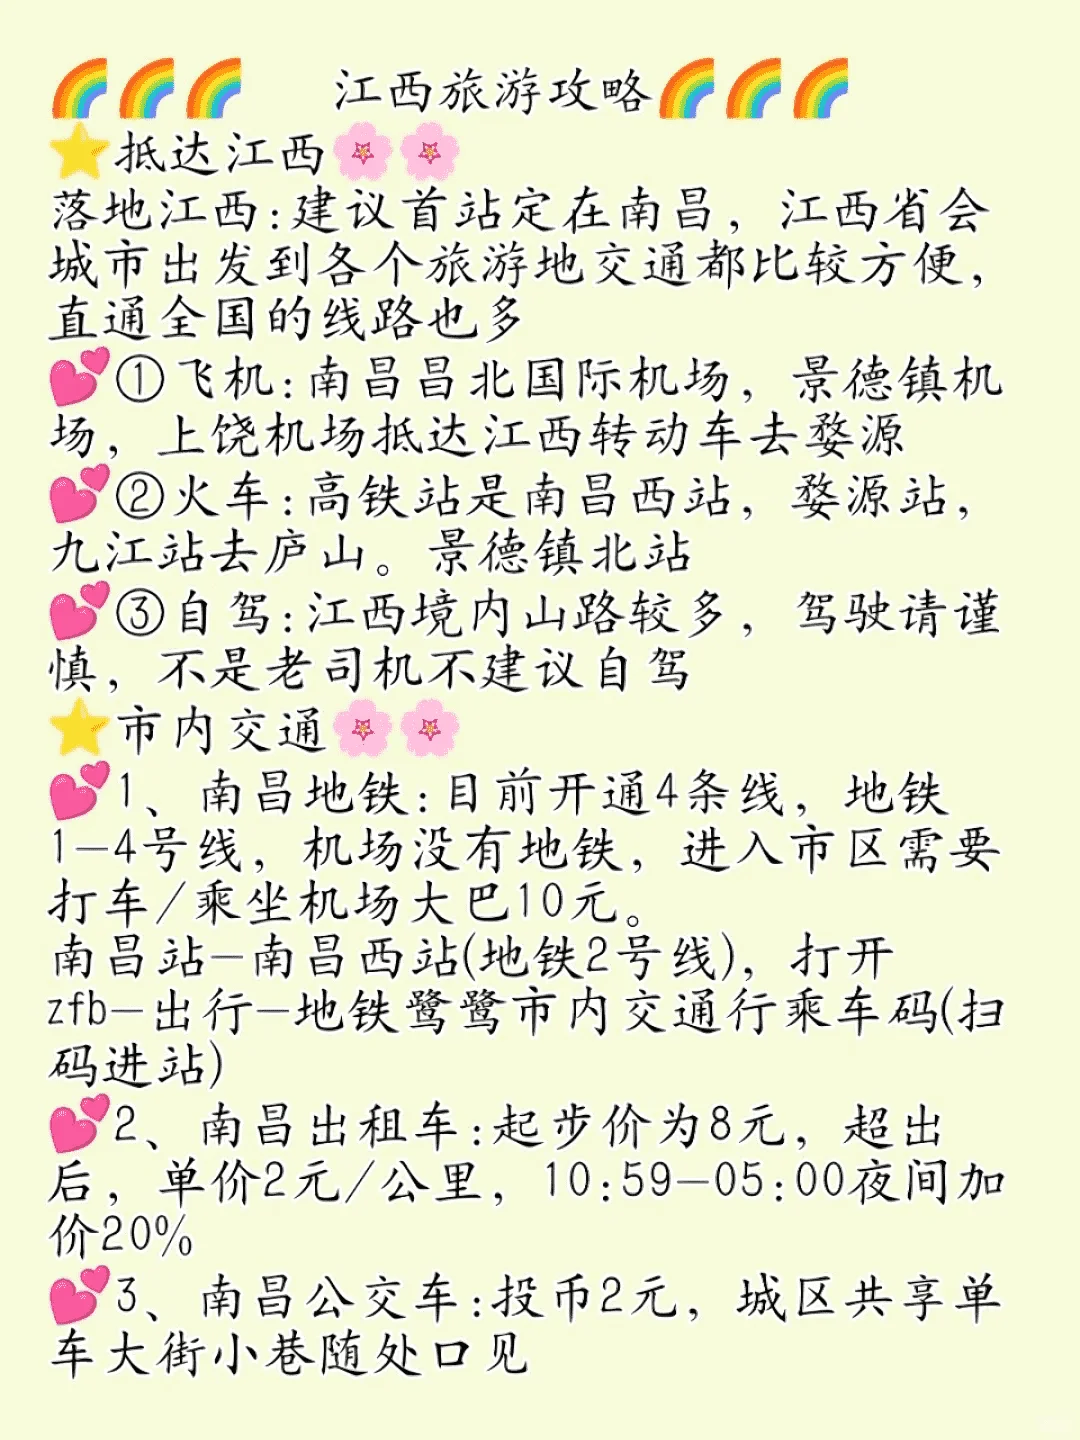 🌈🌈🌈 江西旅游攻略🌈🌈🌈
⭐抵达江西🌸🌸
落地江西:建议首站定在南昌，江西省会
城市出发到各个旅游地交通都比较方便，
直通全国的线路也多
💕①飞机:南昌昌北国际机场，景德镇机
场，上饶机场抵达江西转动车去婺源
💕②火车:高铁站是南昌西站，婺源站，
九江站去庐山。景德镇北站
💕③自驾:江西境内山路较多，驾驶请谨
慎，不是老司机不建议自驾
⭐市内交通🌸🌸
💕1、南昌地铁:目前开通4条线，地铁
1-4号线，机场没有地铁，进入市区需要
打车/乘坐机场大巴10元。
南昌站-南昌西站(地铁2号线)，打开
zfb-出行-地铁鹭鹭市内交通行乘车码(扫
码进站)
💕2、南昌出租车:起步价为8元，超出
后，单价2元/公里，10:59-05:00夜间加
价20%
💕3、南昌公交车:投币2元，城区共享单
车大街小巷随处口见